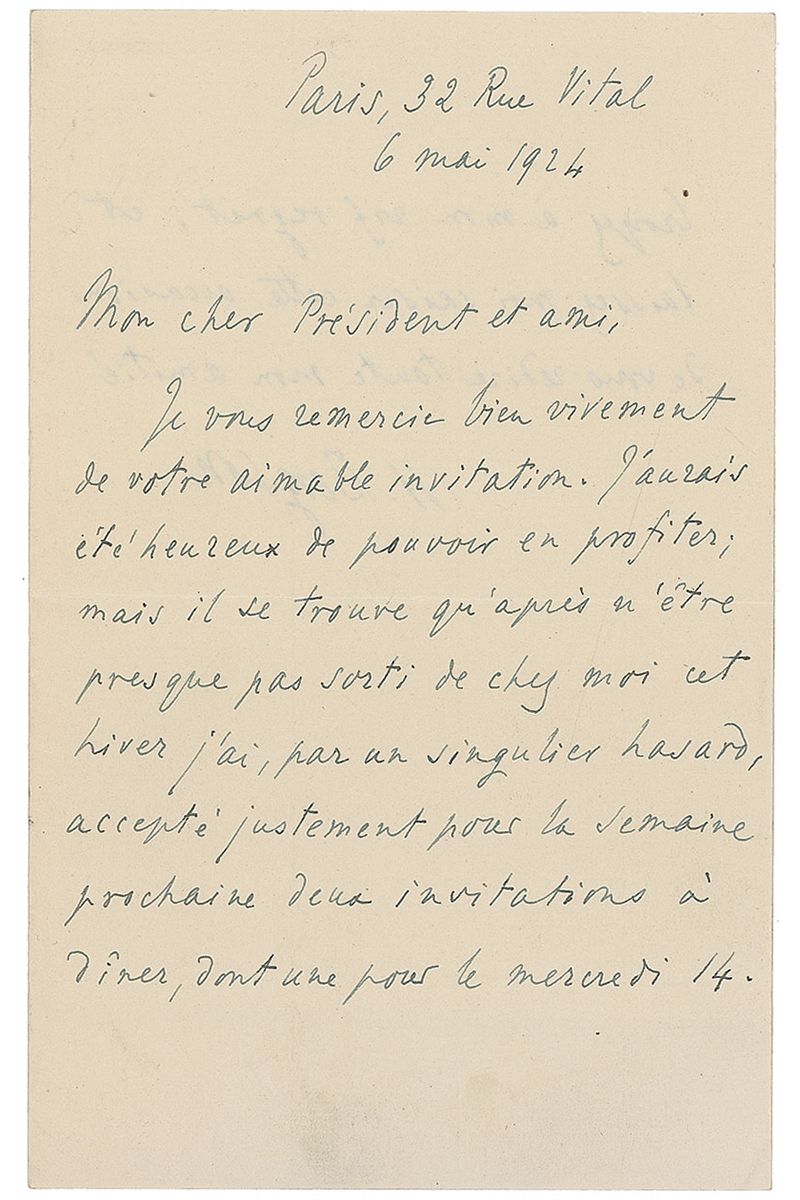 Paris, 32 Rue Vital
6 mai 1924
Mon cher Président et ami,
Je vous remercie bien vivement
de votre aimable invitation. J'aurais
été heureux de pouvoir en profiter;
mais il se trouve qu'après n'être
presque pas sorti de chez moi cet
hiver j'ai, par un singulier hasard,
accepté justement pour la semaine
prochaine deux invitations à
dîner, dont une pour le mercredi 14.